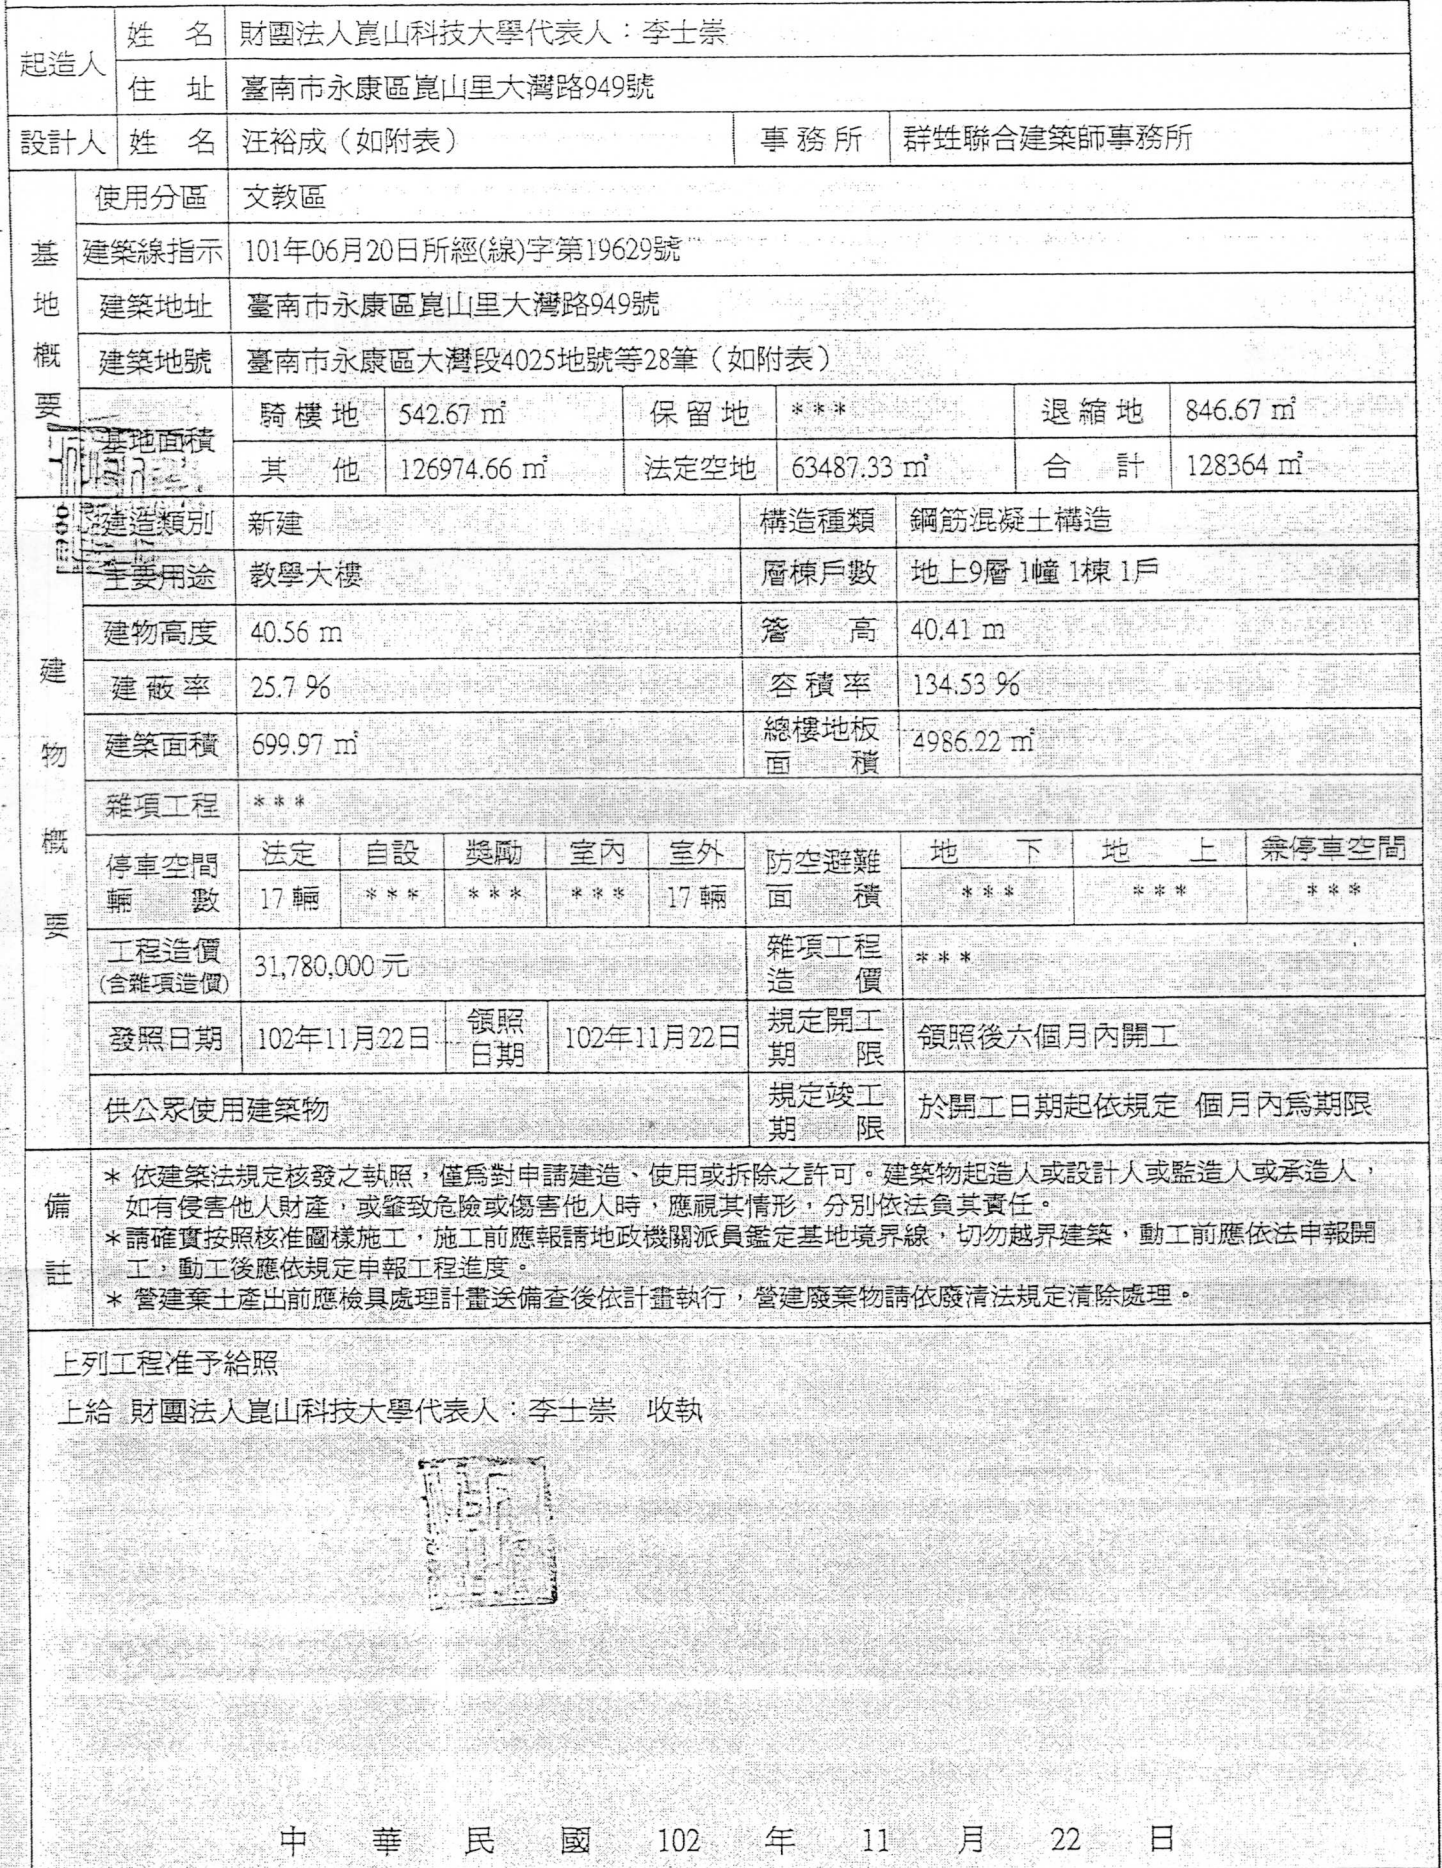 起造人 姓 名 財團法人崑山科技大學代表人：李士崇
住 址 臺南市永康區崑山里大灣路949號
設計人 姓 名 汪裕成（如附表） 事務所 群甡聯合建築師事務所
基地概要
使用分區 文教區
建築線指示 101年06月20日所經(線)字第19629號
建築地址 臺南市永康區崑山里大灣路949號
建築地號 臺南市永康區大灣段4025地號等28筆（如附表）
基地面積 騎樓地 542.67 ㎡ 保留地 *** 退縮地 846.67 ㎡
其 他 126974.66 ㎡ 法定空地 63487.33 ㎡ 合 計 128364 ㎡
建物概要
建造類別 新建 構造種類 鋼筋混凝土構造
主要用途 教學大樓 層棟戶數 地上9層 1幢 1棟 1戶
建物高度 40.56 m 簷 高 40.41 m
建蔽率 25.7 % 容積率 134.53 %
建築面積 699.97 ㎡ 總樓地板面積 4986.22 ㎡
雜項工程 ***
停車空間輛數 法定 自設 獎勵 室內 室外 防空避難面積 地 下 地 上 兼停車空間
17 輛 *** *** *** 17 輛 *** *** ***
工程造價(含雜項造價) 31,780,000 元 雜項工程造價 ***
發照日期 102年11月22日 領照日期 102年11月22日 規定開工期限 領照後六個月內開工
供公眾使用建築物 規定竣工期限 於開工日期起依規定 個月內為期限
備註
* 依建築法規定核發之執照，僅為對申請建造、使用或拆除之許可。建築物起造人或設計人或監造人或承造人，
如有侵害他人財產，或肇致危險或傷害他人時，應視其情形，分別依法負其責任。
* 請確實按照核准圖樣施工，施工前應報請地政機關派員鑑定基地境界線，切勿越界建築，動工前應依法申報開
工，動工後應依規定申報工程進度。
* 營建棄土產出前應檢具處理計畫送備查後依計畫執行，營建廢棄物請依廢清法規定清除處理。
上列工程准予給照
上給 財團法人崑山科技大學代表人：李士崇 收執
中 華 民 國 102 年 11 月 22 日